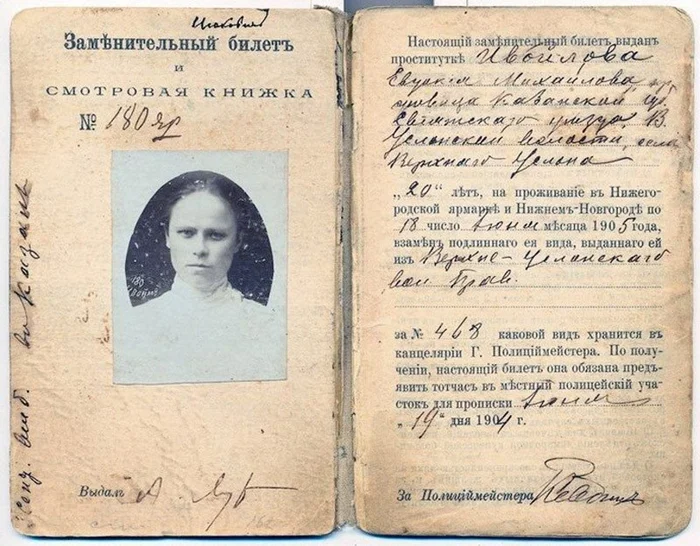 Замѣнительный билетъ
и
СМОТРОВАЯ КНИЖКА
№ 180 яр
Выдалъ
Настоящій замѣнительный билетъ выданъ
проституткѣ Ивойлова
Евдокія Михайлова, кр
Казанской губ.
Свіяжскаго уѣзда, В.
Услонской волости, села
Верхняго Услона
„20“ лѣтъ, на проживаніе въ Нижего-
родской ярмаркѣ и Нижнемъ-Новгородѣ по
18 число Іюня мѣсяца 1905 года,
взамѣнъ подлиннаго ея вида, выданнаго ей
изъ Верхне-Услонскаго
вол. Прав.
за № 468 каковой видъ хранится въ
канцеляріи Г. Полиціймейстера. По полу-
ченіи, настоящій билетъ она обязана предъ-
явить тотчасъ въ мѣстный полицейскій уча-
стокъ для прописки Іюня
„19“ дня 1904 г.
За Полиціймейстера